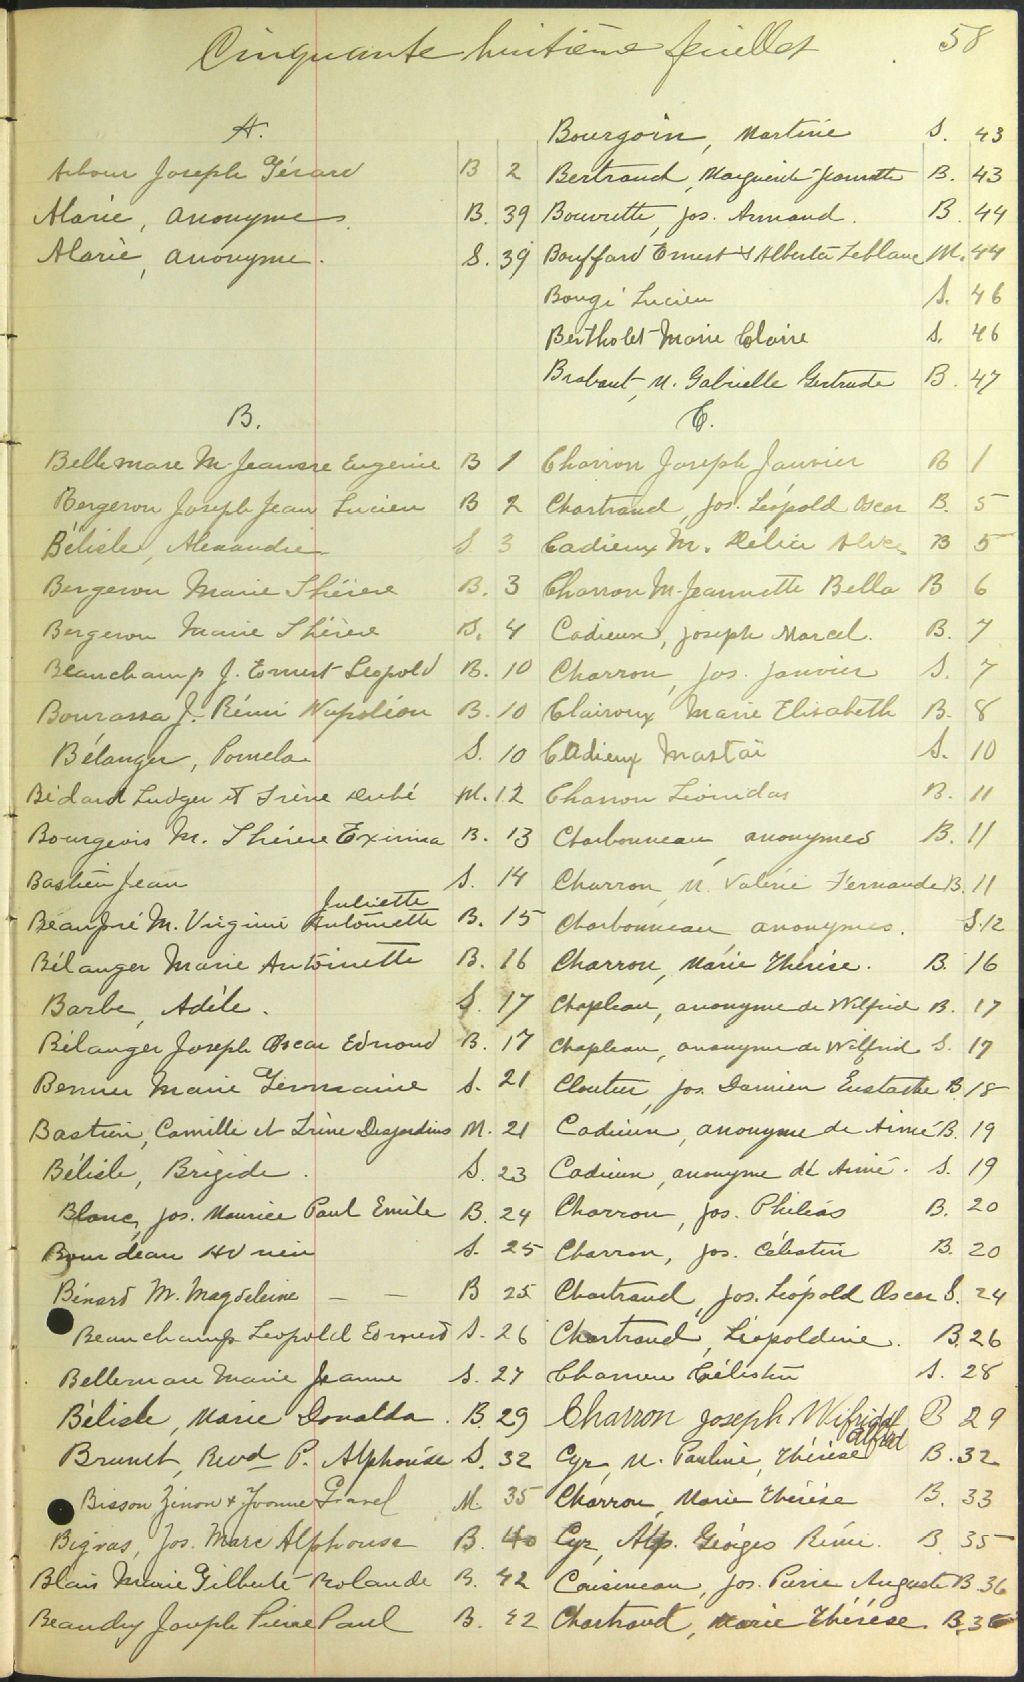 Cinquante huitième feuillet 58
A.
Arbour Joseph Gérard B 2
Alarie, anonyme B. 39
Alarie, anonyme. S. 39
B.
Bellemare M. Jeanne Eugénie B 1
Bergeron Joseph Jean Lucien B 2
Bélisle, Alexandre S 3
Bergeron Marie Thérèse B. 3
Bergeron Marie Thérèse S. 4
Beauchamp J. Ernest Léopold B. 10
Bourassa J. Rémi Napoléon B. 10
Bélanger, Pomela S. 10
Bédard Ludger et Irène Dubé M. 12
Bourgeois M. Thérèse Exirina B. 13
Bastien Jean S. 14
Beaupré M. Virginie Juliette Antoinette B. 15
Bélanger Marie Antoinette B. 16
Barbe, Adèle. S. 17
Bélanger Joseph Oscar Edmond B. 17
Bernier Marie Germaine S. 21
Bastien, Camille et Irène Desjardins M. 21
Bélisle, Brigide. S. 23
Blanc, Jos. Maurice Paul Emile B. 24
Bourdeau S. 25
Bénard M. Magdeleine — — B 25
Beauchamp Léopold Ernest S. 26
Bellemare Marie Jeanne S. 27
Bélisle, Marie Donalda. B. 29
Brunet, Revd P. Alphonse S. 32
Bisson Zénon & Yvonne Gravel M. 35
Bigras, Jos. Marc Alphonse B. 40
Blais Marie Gilberte Rolande B. 42
Beaudry Joseph Pierre Paul B. 42
Bourgoin, Martine S. 43
Bertrand, Marguerite Jeannette B. 43
Bouvrette, Jos. Armand. B. 44
Bouffard Ernest & Alberta Leblanc M. 44
Bougi Lucien S. 46
Bertholet Marie Claire S. 46
Brabant, M. Gabrielle Gertrude B. 47
C.
Charron Joseph Janvier B 1
Chartrand, Jos. Léopold Oscar B. 5
Cadieux M. Délia Alice B 5
Charron M. Jeannette Bella B 6
Cadieux, Joseph Marcel. B. 7
Charron, Jos. Janvier S. 7
Clairoux Marie Elisabeth B. 8
Cadieux Mastaï S. 10
Charron Léonidas B. 11
Charbonneau, anonymes B. 11
Charron, M. Valérie Fernande B. 11
Charbonneau, anonymes. S. 12
Charron, Marie Thérèse. B. 16
Chapleau, anonyme de Wilfrid B. 17
Chapleau, anonyme de Wilfrid S. 17
Cloutier, Jos. Damien Eustache B. 18
Cadieux, anonyme de Aimé B. 19
Cadieux, anonyme de Aimé. S. 19
Charron, Jos. Philéas B. 20
Charron, Jos. Célestin B. 20
Chartrand, Jos. Léopold Oscar S. 24
Chartrand, Léopoldine. B. 26
Charron Célestin S. 28
Charron Joseph Wilfridof Alfred B 29
Cyr, M. Pauline, Thérèse B. 32
Charron, Marie Thérèse B. 33
Cyr, Alp. Georges Rémi. B 35
Cousineau, Jos. Pierre Auguste B. 36
Chartrand, Marie Thérèse. B. 36